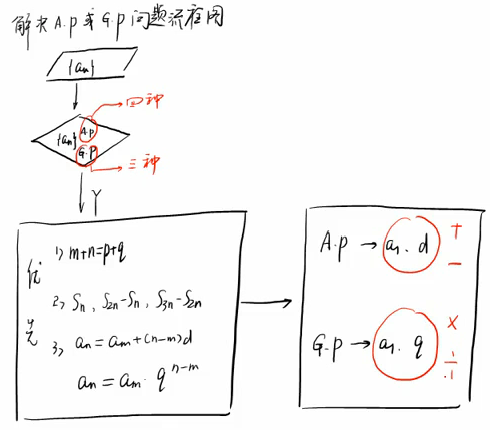 解决A.p或G.p问题流框图
{an}
{an} A.p
G.p
四种
三种
Y
优先
1) m+n=p+q
2) Sn, S2n-Sn, S3n-S2n
3) an=am+(n-m)d
an=am·q^(n-m)
A.p → a1. d + -
G.p → a1. q × ÷